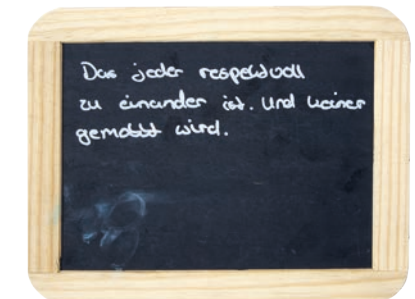 Das jeder respektvoll
zu einander ist. Und keiner
gemobbt wird.